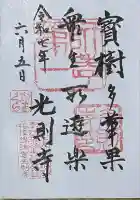 寳樹多華果
衆生所遊楽
光則寺
令和七年
六月五日